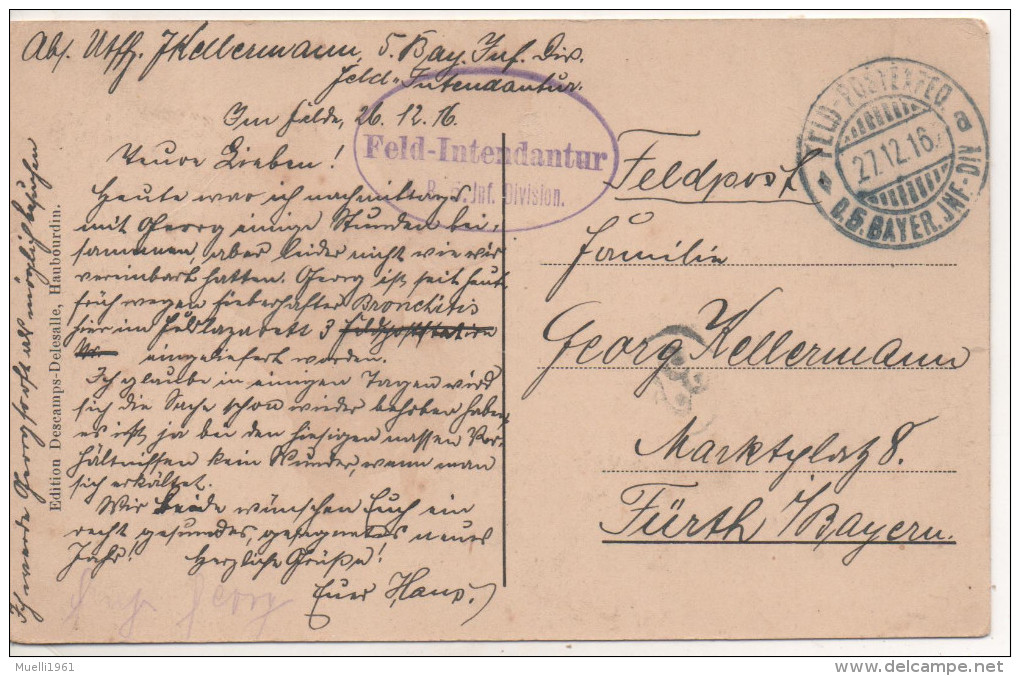 Abs. Utffz. J Kellermann, 5. Bay. Inf. Div.
Feld-Intendantur.
Im Felde, 26.12.16.
Teure Lieben!
Heute war ich nachmittags
mit Georg einige Stunden bei-
sammen, aber leider nicht wie wir
vereinbart hatten. Georg ist seit heute
früh wegen fieberhafter Bronchitis
hier im Feldlazarett 3 Feldpoststation
Nr. eingeliefert worden.
Ich glaube in einigen Tagen wird
sich die Sache schon wieder behoben haben,
es ist ja bei den hiesigen nassen Ver-
hältnissen kein Wunder, wenn man
sich erkältet.
Wir beide wünschen Euch ein
recht gesundes, gesegnetes neues
Jahr! Herzliche Grüße!
Euer Hans.
Georg
Ich werde Georg so oft als möglich besuchen
Edition Descamps-Delesalle, Haubourdin.
Feld-Intendantur
B. 5. Inf. Division.
FELD-POSTEXPED. a
27.12.16.
D. 5. BAYER. INF. DIV
Feldpost
Familie
Georg Kellermann
Marktplatz 8.
Fürth / Bayern.
Muelli1961
delcampe.net